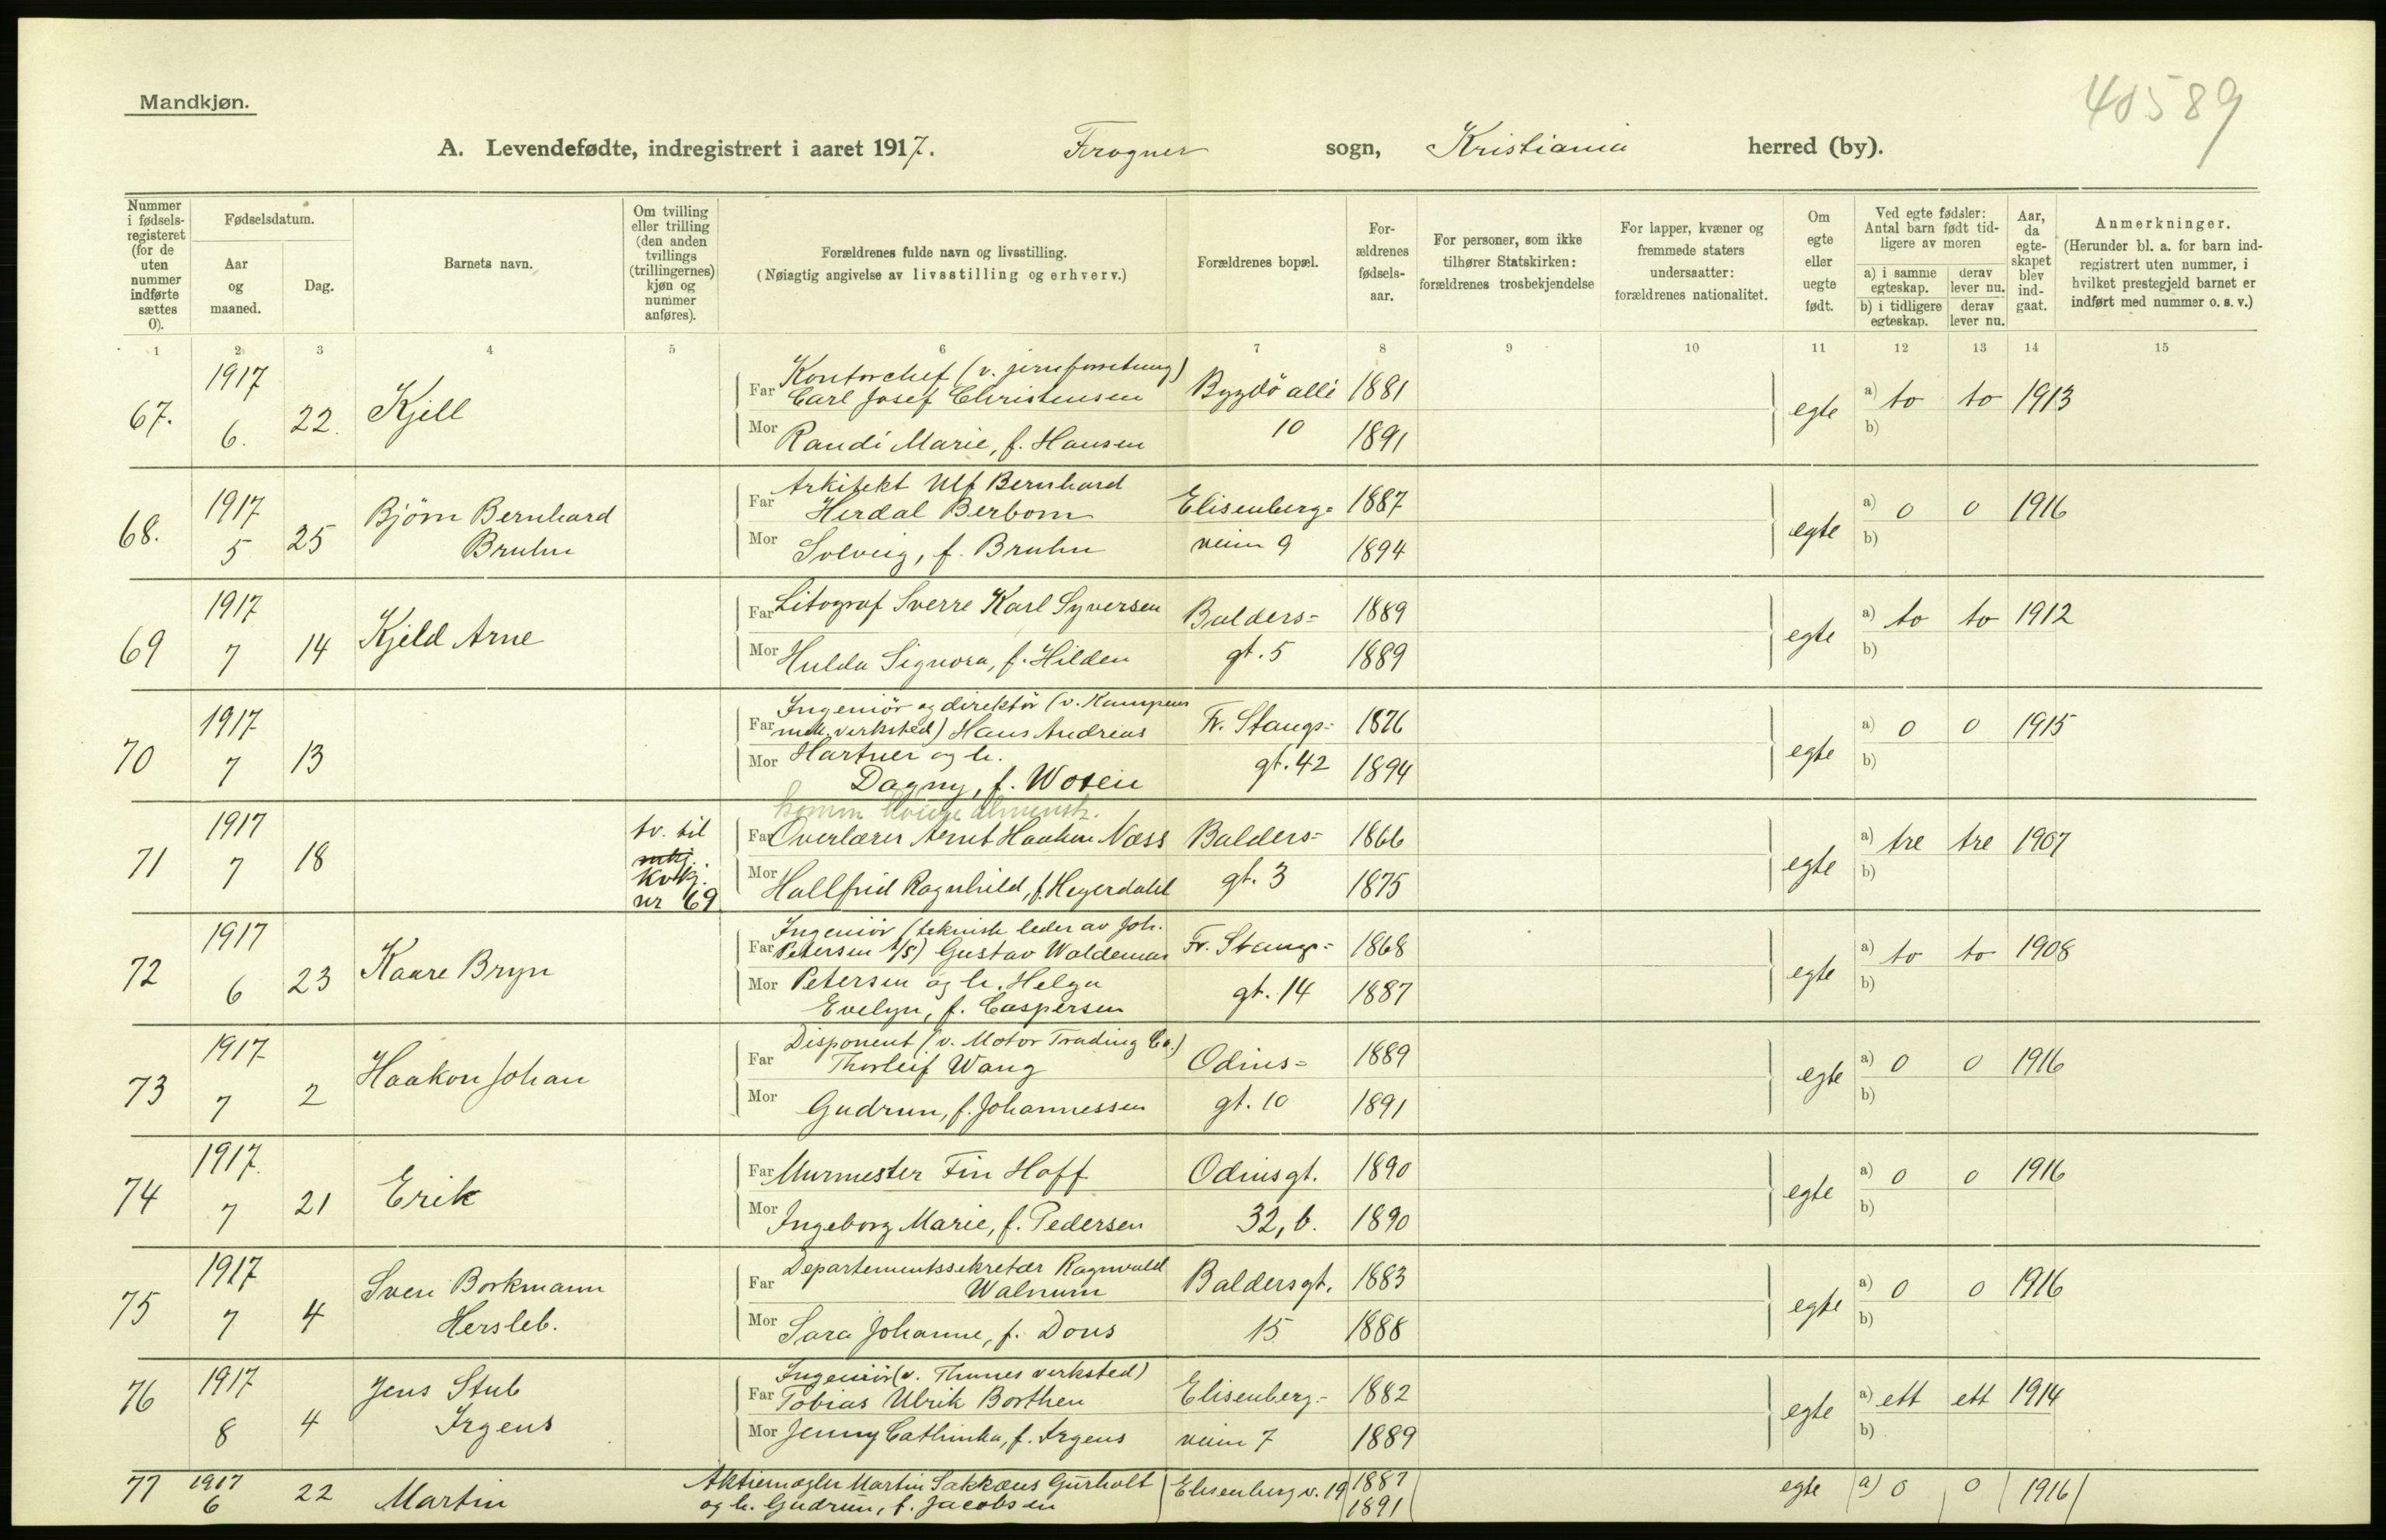 Mandkjøn.
40589
A. Levendefødte, indregistrert i aaret 1917. Frogner sogn, Kristiania herred (by).
Nummer i fødsels-registeret (for de uten nummer indførte sættes 0).
Fødselsdatum.
Aar og maaned.
Dag.
Barnets navn.
Om tvilling eller trilling (den anden tvillings (trillingernes) kjøn og nummer anføres).
Forældrenes fulde navn og livsstilling.
(Nøiagtig angivelse av livsstilling og erhverv.)
Forældrenes bopæl.
For-ældrenes fødsels-aar.
For personer, som ikke tilhører Statskirken: forældrenes trosbekjendelse
For lapper, kvæner og fremmede staters undersaatter: forældrenes nationalitet.
Om egte eller uegte født.
Ved egte fødsler: Antal barn født tid-ligere av moren
a) i samme egteskap.
derav lever nu.
b) i tidligere egteskap.
derav lever nu.
Aar, da egte-skapet blev ind-gaat.
Anmerkninger.
(Herunder bl. a. for barn ind-registrert uten nummer, i hvilket prestegjeld barnet er indført med nummer o. s. v.)
1 2 3 4 5 6 7 8 9 10 11 12 13 14 15
67. 1917 6. 22. Kjell
Far Kontorchef (v. jernforretning)
Carl Josef Christensen Bygdö allé 1881
Mor Randi Marie, f. Hansen 10 1891
egte a) to to 1913
b)
68. 1917 5 25 Björn Bernhard
Bruhn
Far Arkitekt Ulf Bernhard
Herdal Berbom Elisenberg= 1887
Mor Solveig, f. Bruhn veien 9 1894
egte a) 0 0 1916
b)
69 1917 7 14 Kjeld Arne
Far Litograf Sverre Karl Syversen Balders= 1889
Mor Hulda Signora, f. Hilden gt. 5 1889
egte a) to to 1912
b)
70 1917 7 13
Far Ingeniör og direktör (v. Kampens
mek. verksted) Hans Andreas Fr. Stangs= 1876
Mor Hartner og h.
Dagny, f. Woxen gt. 42 1894
egte a) 0 0 1915
b)
71 1917 7 18
tv. til
mkj.
kvkj.
nr 69
Far Overlærer Arnt Haakon Næss Balders= 1866
Mor Hallfrid Ragnhild, f. Heyerdahl gt. 3 1875
egte a) tre tre 1907
b)
72 1917 6 23 Kaare Bryn
Far Ingeniör (teknisk leder av Joh.
Petersen A/S) Gustav Waldemar Fr. Stangs= 1868
Mor Petersen og h. Helga
Evelyn, f. Caspersen gt. 14 1887
egte a) to to 1908
b)
73 1917 7 2 Haakon Johan
Far Disponent (v. Motor Trading Co.)
Thorleif Wang Odins= 1889
Mor Gudrun, f. Johannessen gt. 10 1891
egte a) 0 0 1916
b)
74 1917. 7 21 Erik
Far Murmester Fin Hoff Odinsgt. 1890
Mor Ingeborg Marie, f. Pedersen 32, b. 1890
egte a) 0 0 1916
b)
75 1917 7 4 Sven Borkmann
Hersleb.
Far Departementssekretær Ragnvald
Walnum Baldersgt. 1883
Mor Sara Johanne, f. Dons 15 1888
egte a) 0 0 1916
b)
76 1917 8 4 Jens Stub
Irgens
Far Ingeniör (v. Thunes verksted)
Tobias Ulrik Borthen Elisenberg- 1882
Mor Jenny Cathinka, f. Irgens veien 7 1889
egte a) ett ett 1914
b)
77 1917 6 22 Martin
Aktiemægler Martin Sakkæus Gürholt Elisenberg v. 19 1887
og h. Gudrun, f. Jacobsen 1891
egte a) 0 0 1916